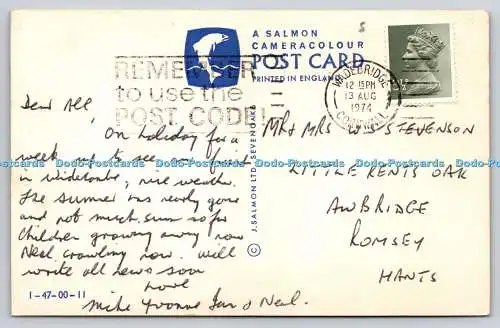 A SALMON
CAMERACOLOUR
POST CARD
PRINTED IN ENGLAND
REMEMBER
to use the
POST CODE
WADEBRIDGE
12 15PM
13 AUG
1974
CORNWALL
Dear All,
On holiday for a
week up to see friends
in Widecombe, nice weather.
The summer has nearly gone
and not much sun so far
Children growing away now
Neal crawling now. will
write all news soon
love
Mike Yvonne Ian & Neal.
1-47-00-11
© J. SALMON LTD., SEVENOAKS
Mr & Mrs W STEVENSON
LITTLE KENTS OAK
AWBRIDGE
ROMSEY
HANTS
Dodo-Postcards Dodo-Postcards Dodo-Postcards Dodo-Postcards Dodo-Postcards Dodo-Postcards